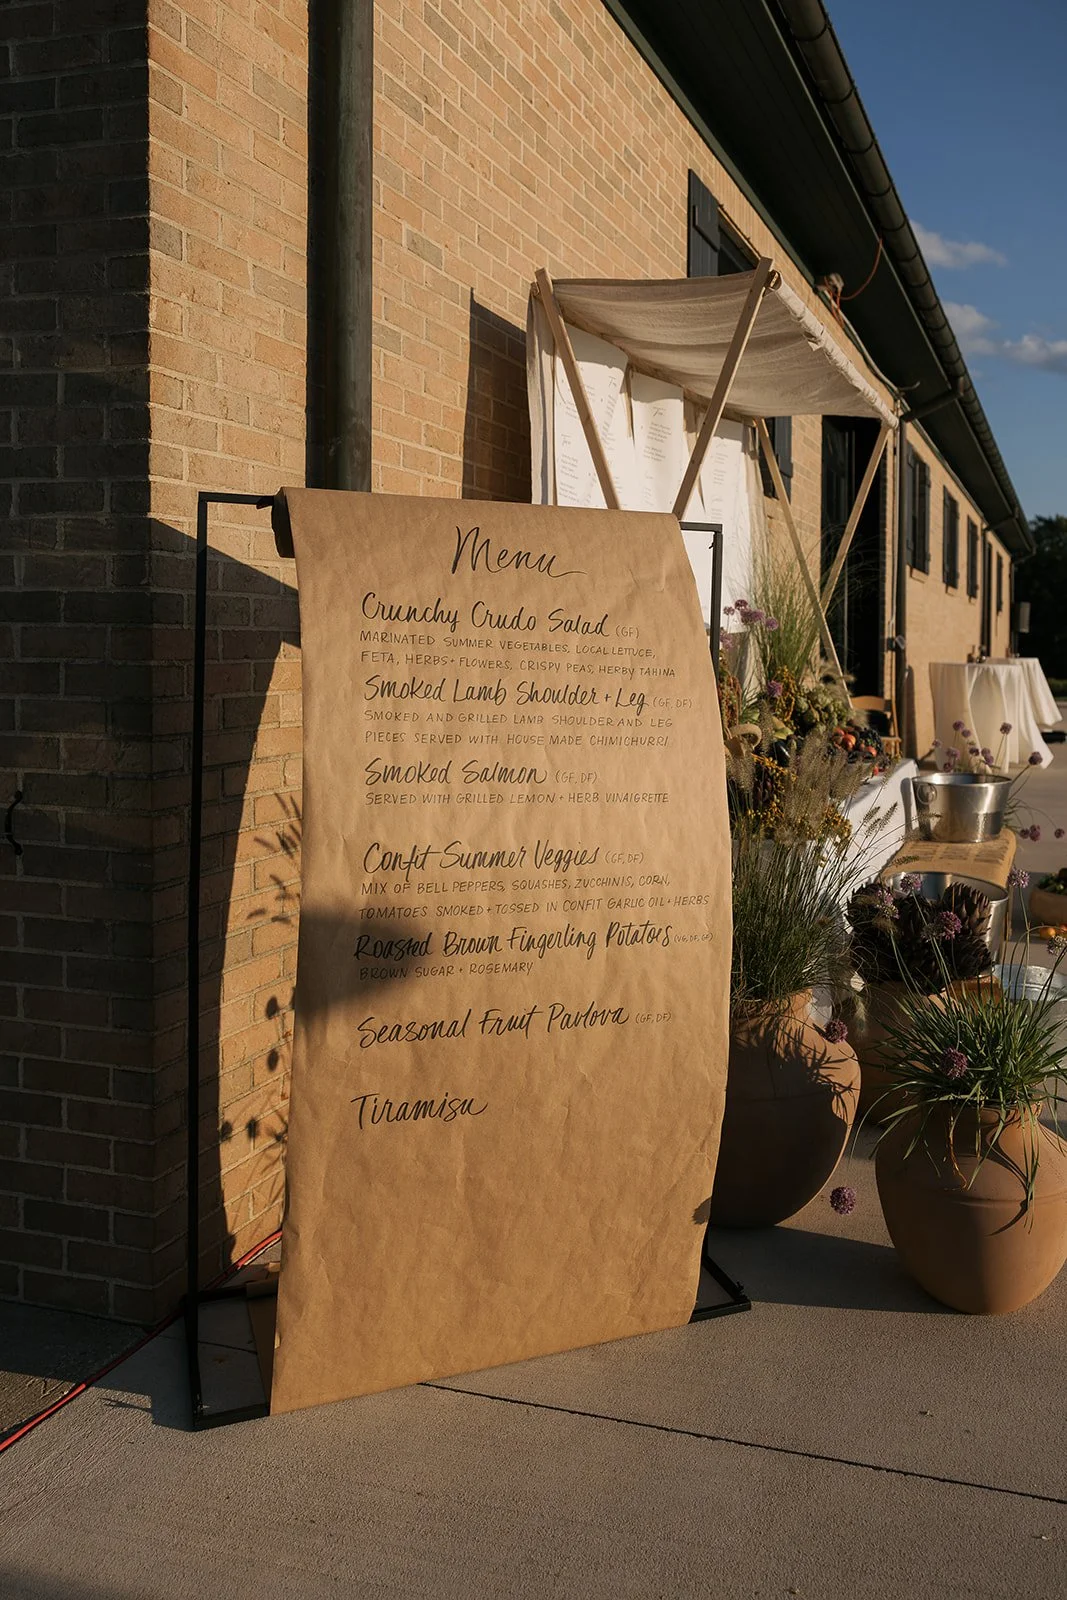 Menu
Crunchy Crudo Salad (GF)
MARINATED SUMMER VEGETABLES, LOCAL LETTUCE,
FETA, HERBS + FLOWERS, CRISPY PEAS, HERBY TAHINA
Smoked Lamb Shoulder + Leg (GF, DF)
SMOKED AND GRILLED LAMB SHOULDER AND LEG
PIECES SERVED WITH HOUSE MADE CHIMICHURRI
Smoked Salmon (GF, DF)
SERVED WITH GRILLED LEMON + HERB VINAIGRETTE
Confit Summer Veggies (GF, DF)
MIX OF BELL PEPPERS, SQUASHES, ZUCCHINIS, CORN,
TOMATOES SMOKED + TOSSED IN CONFIT GARLIC OIL + HERBS
Roasted Brown Fingerling Potatoes (VG, DF, GF)
BROWN SUGAR + ROSEMARY
Seasonal Fruit Pavlova (GF, DF)
Tiramisu